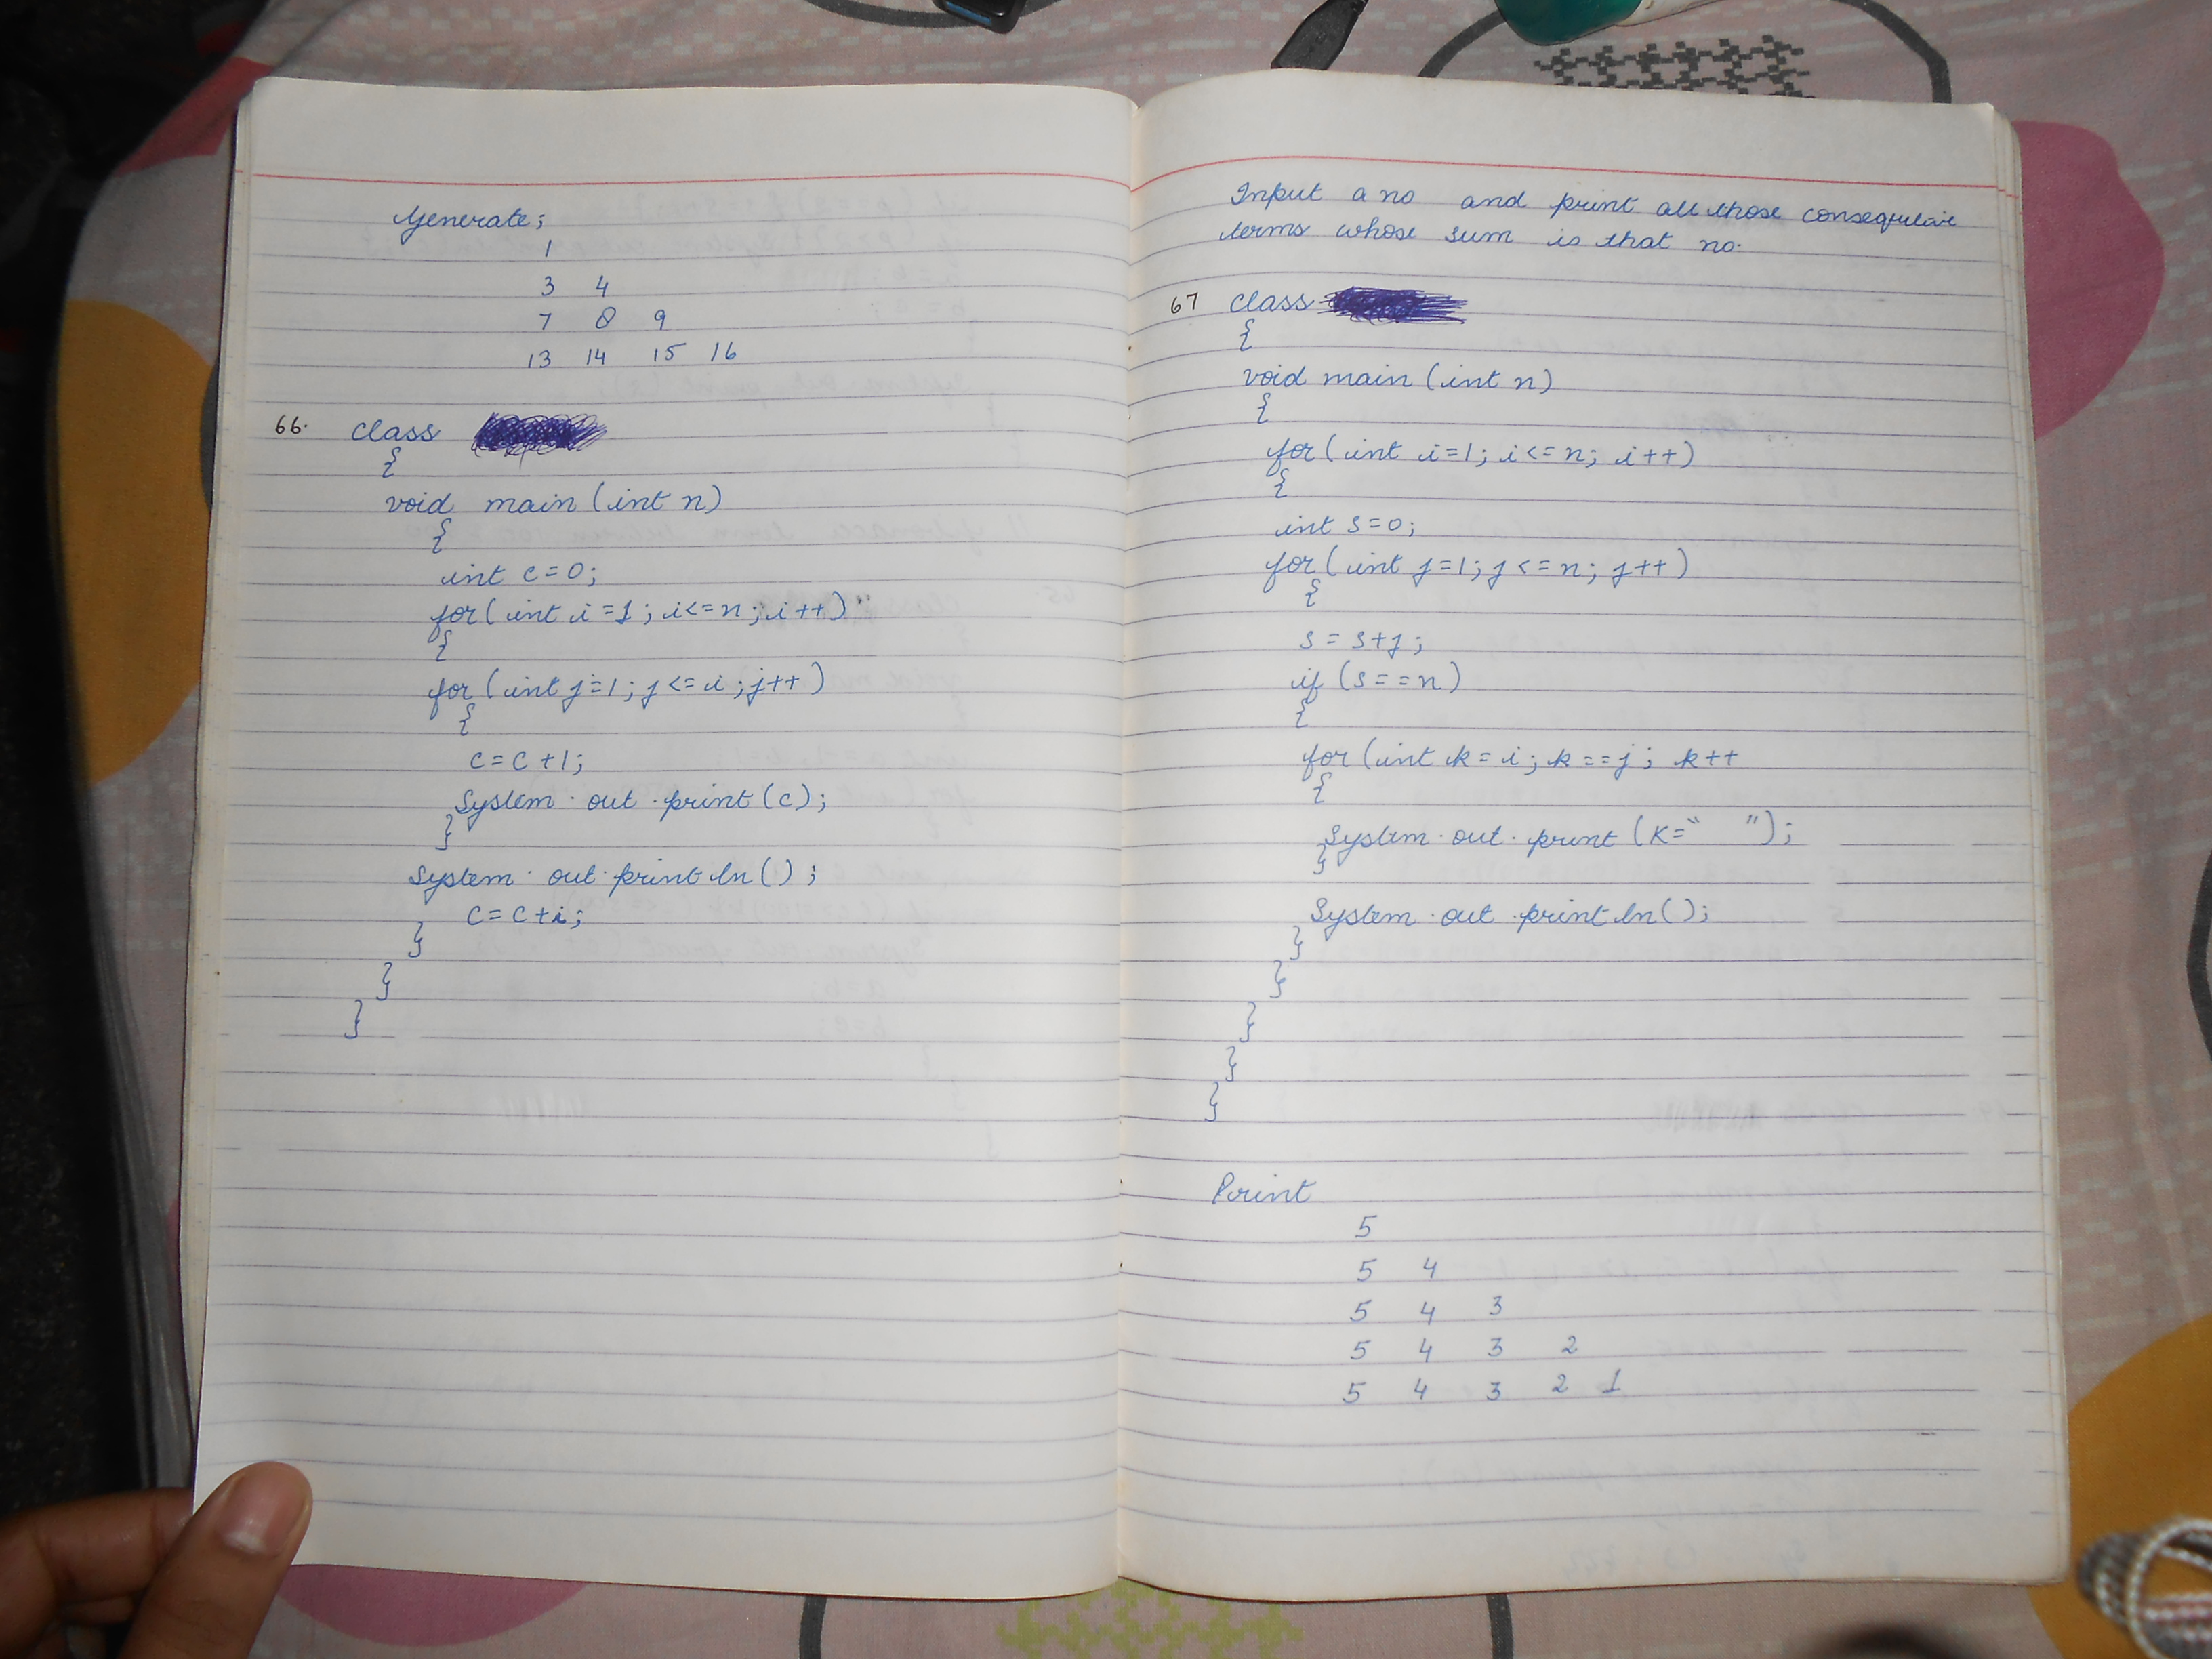 Generate;
1
3 4
7 8 9
13 14 15 16
66. class
{
void main (int n)
{
int c=0;
for( int i=1; i<=n; i++)
{
for (int j=1; j<=i; j++)
{
c=c+1;
System.out.print(c);
}
System.out.println();
c=c+i;
}
}
}
Input a no and print all those consequtive
terms whose sum is that no.
67 class
{
void main (int n)
{
for(int i=1; i<=n; i++)
{
int s=0;
for(int j=1; j<=n; j++)
{
s=s+j;
if (s==n)
{
for(int k=i; k==j; k++
{
System.out.print(K=" ");
}
System.out.println();
}
}
}
}
}
Print
5
5 4
5 4 3
5 4 3 2
5 4 3 2 1